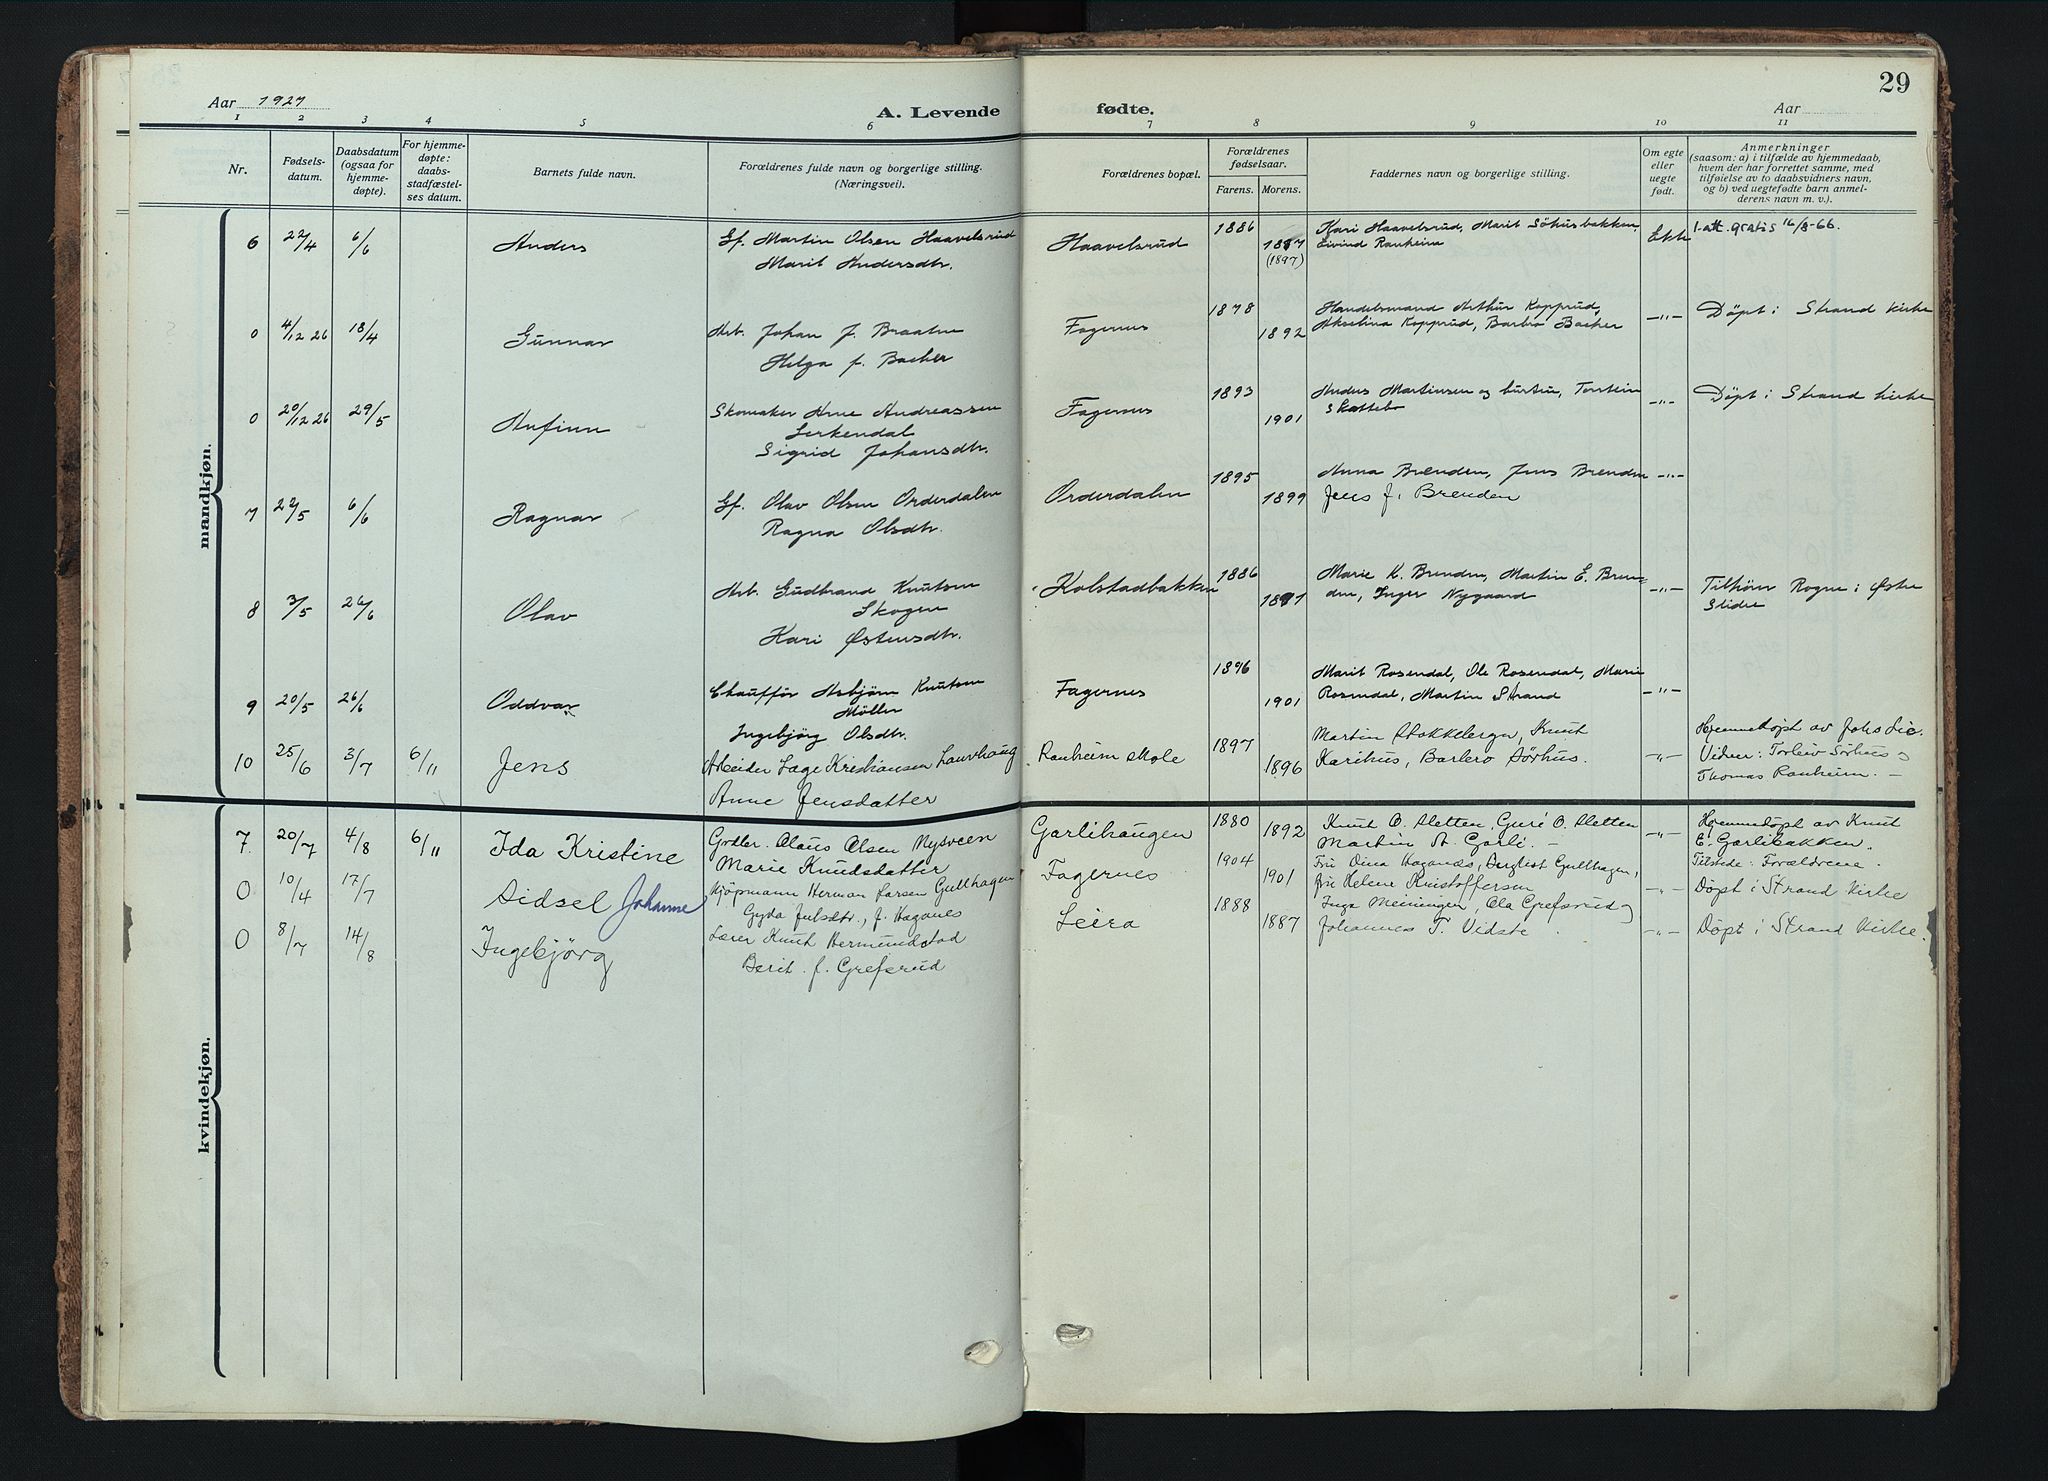 29
Aar 1927
A. Levende
fødte.
Aar
1 2 3 4 5 6 7 8 9 10 11
Nr.
Fødsels-
datum.
Daabsdatum
(ogsaa for
hjemme-
døpte).
For hjemme-
døpte:
daabs-
stadfæstel-
ses datum.
Barnets fulde navn.
Forældrenes fulde navn og borgerlige stilling.
(Næringsvei).
Forældrenes bopæl.
Forældrenes
fødselsaar.
Farens. Morens.
Faddernes navn og borgerlige stilling.
Om egte
eller
uegte
født.
Anmerkninger
(saasom: a) i tilfælde av hjemmedaab,
hvem der har forrettet samme, med
tilføielse av to daabsvidners navn,
og b) ved uegtefødte barn anmel-
derens navn m. v.).
mandkjøn.
6 22/4 6/6 Anders Gf. Martin Olsen Haavelsrud
Marit Andersdtr.
Haavelsrud 1886 1887
(1897)
Kari Haavelsrud, Marit Sökusbakken,
Eivind Ranheim
Ekte 1-att. gratis 16/8-66.
0 4/12 26 18/4 Gunnar Arb. Johan J. Braaten
Helga f. Bacher
Fagernes 1878 1892
Handelsmand Arthur Kopprud,
Akselina Kopprud, Barbro Bacher
—"— Døpt i Strand kirke
0 20/12 26 29/5 Anfinn Skomaker Arne Andreassen
Lerkendal
Sigrid Johansdtr.
Fagernes 1893 1901
Anders Martinsen og hustru, Torstein
Skattebo
—"— Døpt i Strand kirke
7 22/5 6/6 Ragnar Gf. Olav Olsen Orderdalen
Ragna Olsdtr.
Orderdalen 1895 1899
Anna Brenden, Jens Brenden
Jens J. Brenden
—"—
8 3/5 26/6 Olav Arb. Gudbrand Knutsen
Skogen
Kari Østensdtr.
Kolstadbakken 1886 1891
Marie K. Brenden, Martin E. Bren-
den, Inger Nygaard
—"— Tilhører Rogne i Østre
Slidre
9 20/5 26/6 Oddvar Chauffør Asbjørn Knutsen
Møller
Ingebjörg Olsdtr.
Fagernes 1896 1901
Marit Rosendal, Ole Rosendal, Marie
Rosendal, Martin Strand
—"—
10 25/6 3/7 6/11 Jens Arbeider Lage Kristiansen Lauvhaug
Anne Jensdatter
Ranheim skole 1897 1896
Martin Stokkeberg, Knut
Karihus, Barbro Sørhus.
—"— Hjemmedøpt av Johs Lie.
Vidner: Torleiv Sørhus og
Thomas Ranheim. —
kvindekjøn.
7. 20/7 4/8 6/11 Ida Kristine Grdbr. Olaus Olsen Nysveen
Marie Knudsdatter
Garlihaugen 1880 1892
Knut O. Sletten, Guri O. Sletten
Martin A. Garli. —
—"— Hjemmedøpt av Knut
E. Garlibakken.
Tilstede: Forældrene.
0 10/4 17/7 Sidsel Johanne Kjøpmann Herman Larsen Gullhagen
Gyda Julsdtr., f. Haganes
Fagernes 1904 1901
Fru Dina Haganes, Bergljot Gullhagen,
Fru Helene Kristoffersen
—"— Døpt i Strand Kirke
0 8/7 14/8 Ingebjørg Lærer Knut Hermundstad
Berit f. Grefsrud
Leira 1888 1887
Inga Meiningen, Ola Grefsrud og
Johannes T. Vidste.
—"— Døpt i Strand Kirke.